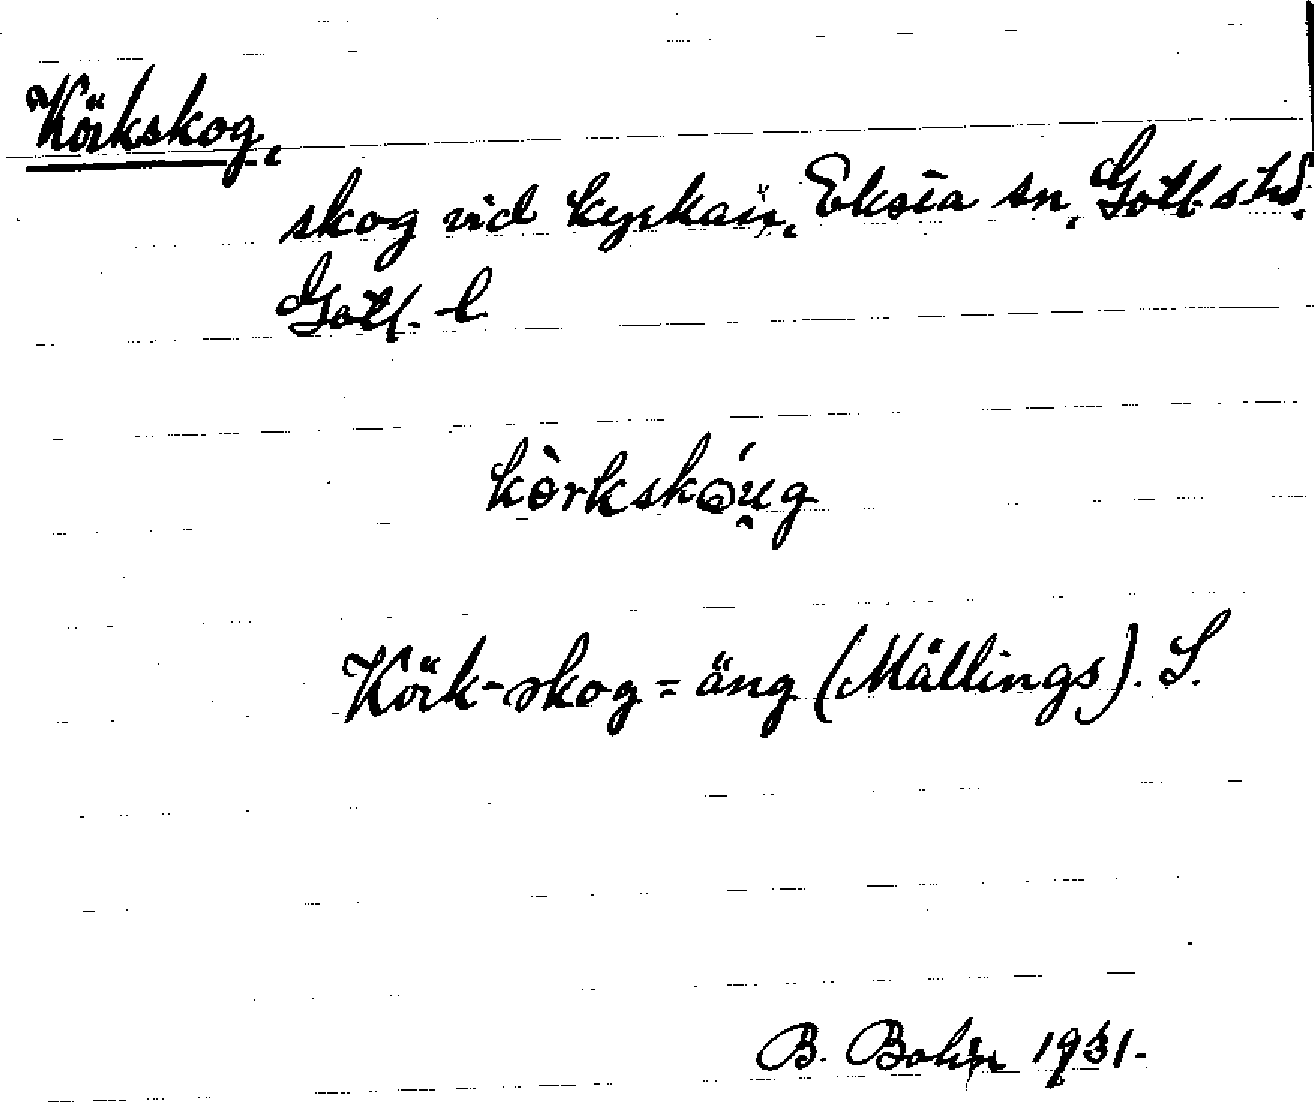 Körkskog,
skog vid kyrkan, Eksta sn, Gotl. s hd.
Gotl. l
kòrkskóu̯g
Körk-skog = äng (Mällings). S.
B. Bohn 1931.